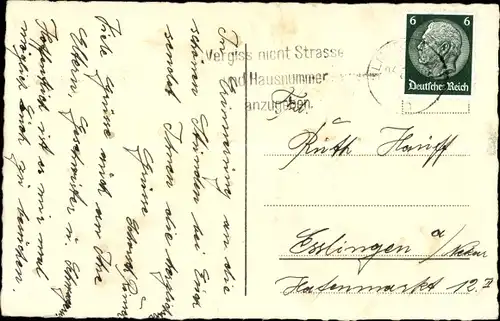 Zur Erinnerung an die
schönen Stunden bei Euch
sendet Ihnen die herzlichsten
Grüsse
Viele Grüsse auch an Ihre
Eltern, Geschwister u.
Hoffentlich ist es mir mal
möglich Euch zu besuchen.
Vergiss nicht Strasse
und Hausnummer
anzugeben.
6 6
Deutsches Reich
Frl.
Ruth Hauff
Esslingen a/Neckar
Hafenmarkt 12 II